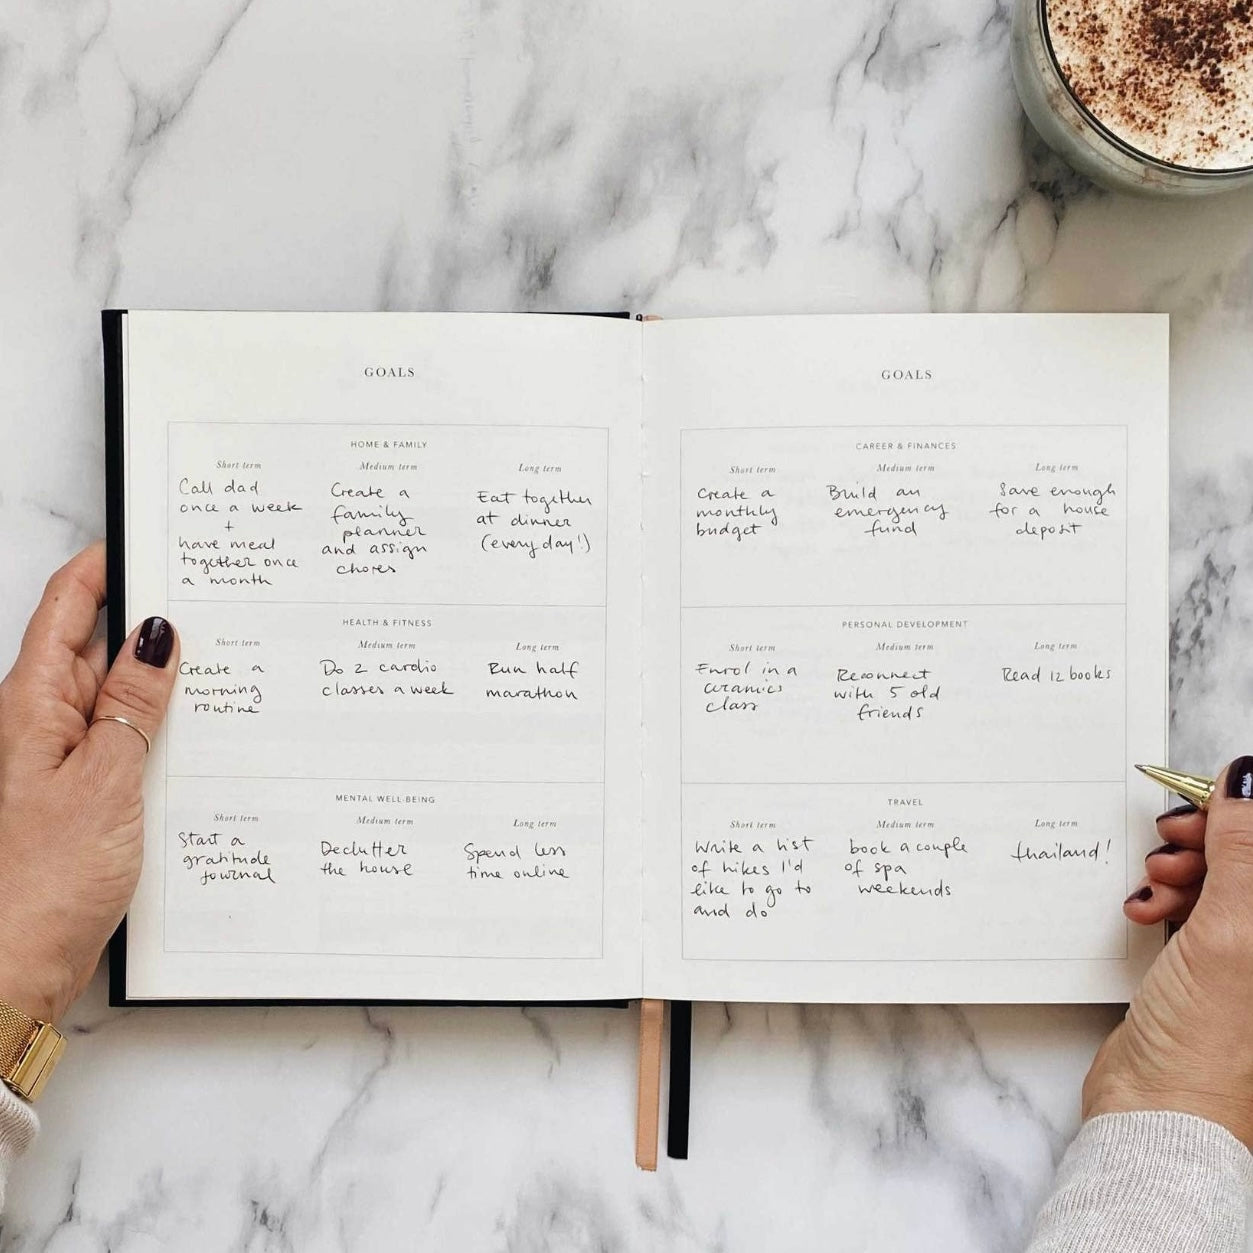 GOALS
HOME & FAMILY
Short term
Call dad
once a week
+
have meal
together once
a month
Medium term
Create a
family
planner
and assign
chores
Long term
Eat together
at dinner
(every day!)
HEALTH & FITNESS
Short term
Create a
morning
routine
Medium term
Do 2 cardio
classes a week
Long term
Run half
marathon
MENTAL WELL-BEING
Short term
Start a
gratitude
journal
Medium term
Declutter
the house
Long term
Spend less
time online
GOALS
CAREER & FINANCES
Short term
Create a
monthly
budget
Medium term
Build an
emergency
fund
Long term
Save enough
for a house
deposit
PERSONAL DEVELOPMENT
Short term
Enrol in a
ceramics
class
Medium term
Reconnect
with 5 old
friends
Long term
Read 12 books
TRAVEL
Short term
Write a list
of hikes I'd
like to go to
and do
Medium term
book a couple
of spa
weekends
Long term
thailand!